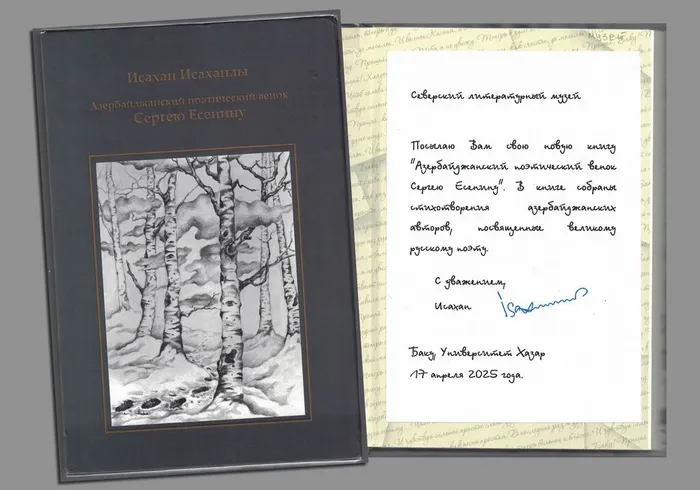 Исахан Исаханлы
Азербайджанский поэтический венок
Сергею Есенину
Северский литературный музей
Посылаю Вам свою новую книгу
"Азербайджанский поэтический венок
Сергею Есенину". В книге собраны
стихотворения азербайджанских
авторов, посвященные великому
русскому поэту.
С уважением,
Исахан
Баку, Университет Хазар
17 апреля 2025 года.